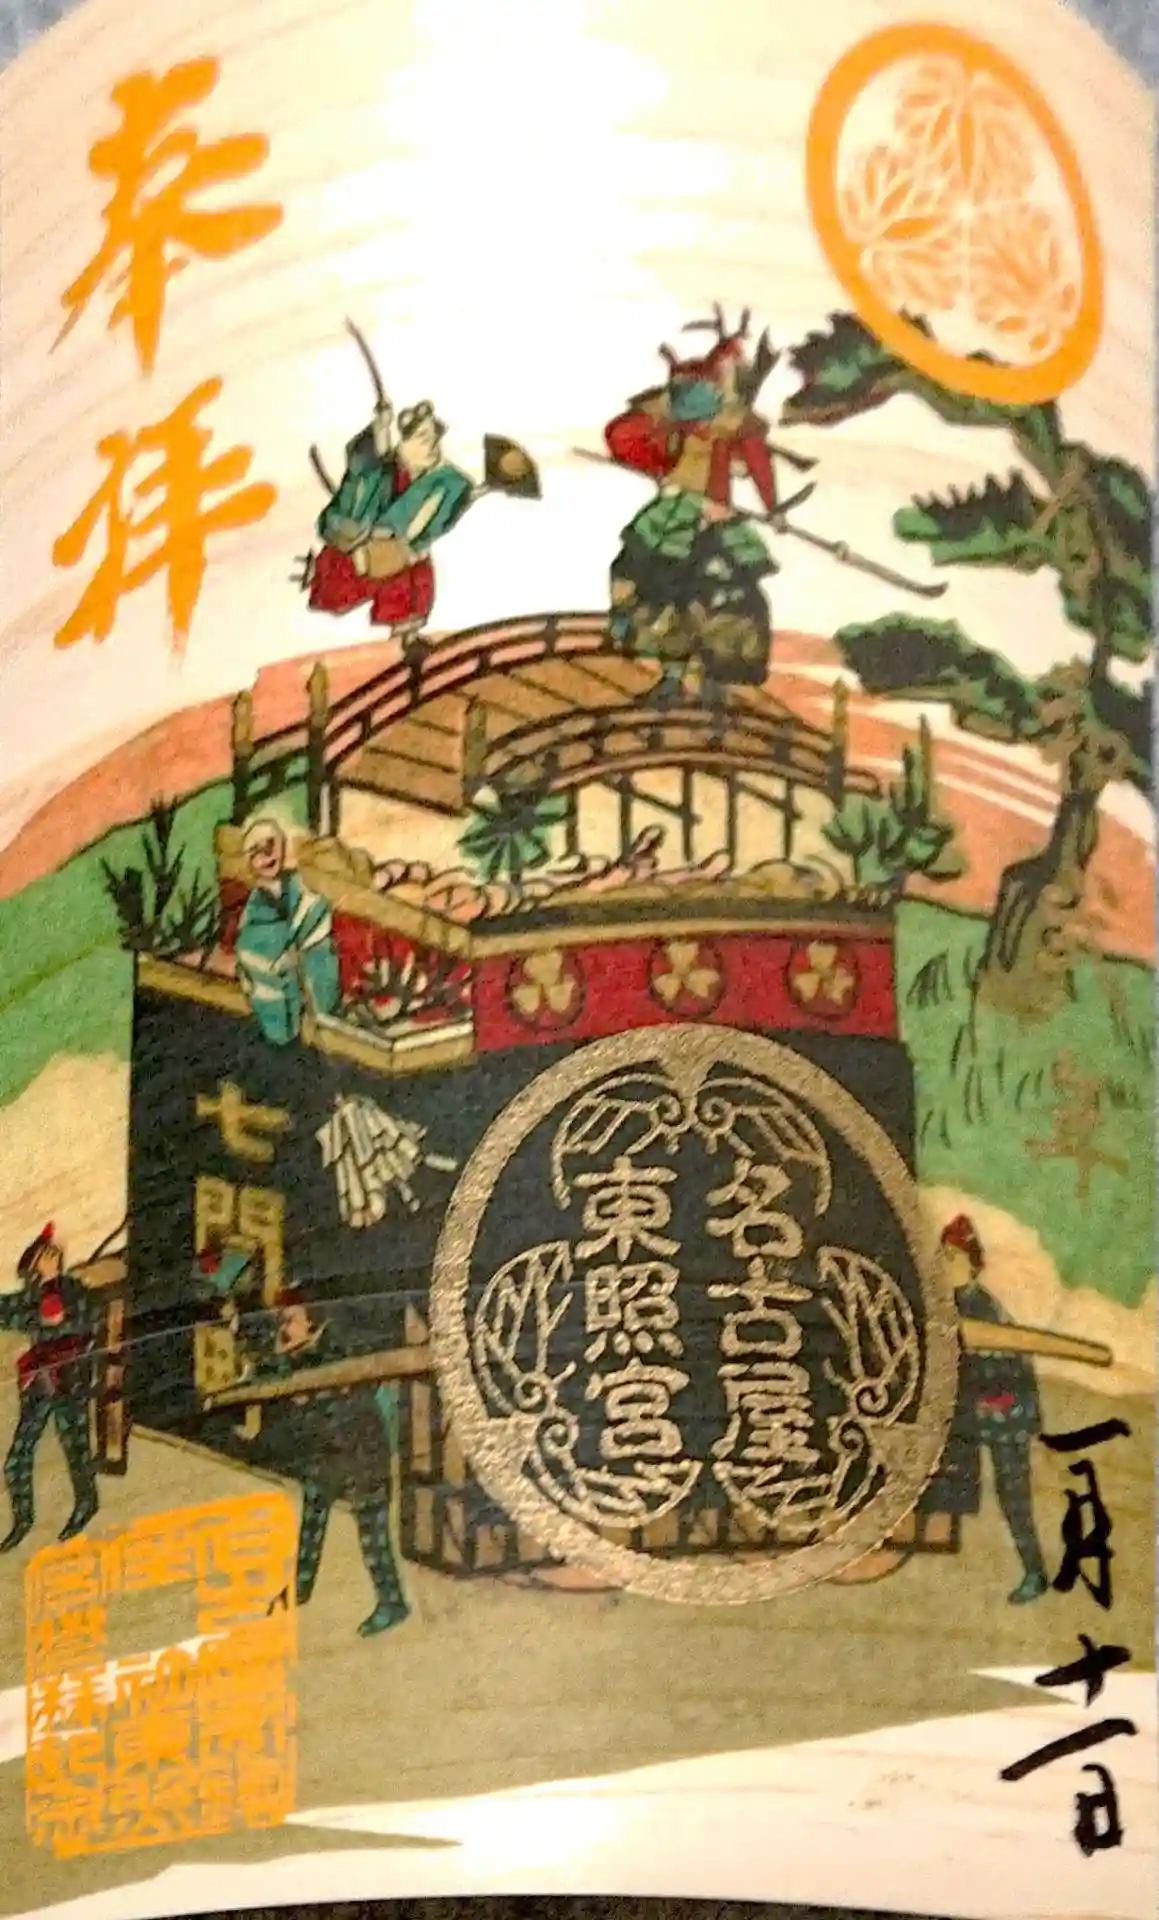 奉拝
名古屋
東照宮
七間町
年
一月十一日